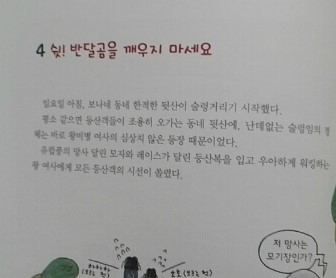 4 쉿! 반달곰을 깨우지 마세요
일요일 아침, 보나네 동네 한적한 뒷산이 술렁거리기 시작했다.
평소 같으면 등산객들이 조용히 오가는 동네 뒷산에, 난데없는 술렁임의 정
체는 바로 왕비병 여사의 심상치 않은 등장 때문이었다.
유럽풍의 망사 달린 모자와 레이스가 달린 등산복을 입고 우아하게 워킹하는
왕 여사에게 모든 등산객의 시선이 쏠렸다.
저 망사는
모기장인가?